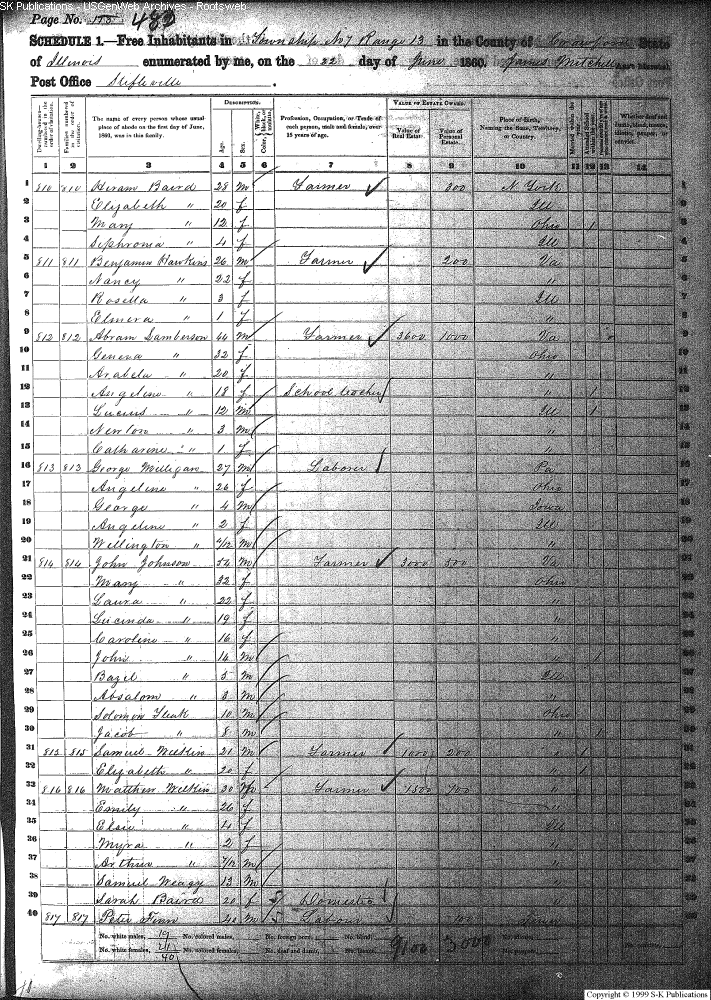 SK Publications - USGenWeb Archives - Rootsweb
Page No. 175 482
SCHEDULE 1.—Free Inhabitants in Township No 7 Range 13 in the County of Crawford State
of Illinois enumerated by me, on the 22 day of June 1860. James Mitchell Ass't Marshal.
Post Office
Dwelling-houses— numbered in the order of visitation. Families numbered in the order of visitation. The name of every person whose usual place of abode on the first day of June, 1860, was in this family. DESCRIPTION. Age. Sex. Color, White, black, or mulatto. Profession, Occupation, or Trade of each person, male and female, over 15 years of age. VALUE OF ESTATE OWNED. Value of Real Estate. Value of Personal Estate. Place of Birth, Naming the State, Territory, or Country.
1 2 3 4 5 6 7 8 9 10 11 12 13 14
1 810 810 Hiram Baird 28 m Farmer 300 N. York
2 Elizabeth " 20 f Ill
3 Mary " 12 f Ohio 1
4 Sephronia " 4 f Ill
5 811 811 Benjamin Hawkins 26 m Farmer 200 Va
6 Nancy " 22 f "
7 Rosella " 3 f Ill
8 Elmera " 1 f "
9 812 812 Abram Lamberson 44 m Farmer 3600 1000 Va
10 Geneva " 32 f Ohio
11 Arabela " 20 f "
12 Angeline " 18 f School teacher " 1
13 Lucius " 12 m Ill 1
14 Newton " 3 m "
15 Catharine " 1 f "
16 813 813 George Milligan 27 m Laborer Pa
17 Angeline " 26 f Ohio
18 George " 4 m Iowa
19 Angeline " 2 f Ill
20 Wellington " 4/12 m "
21 814 814 John Johnson 54 m Farmer 3000 500 Va
22 Mary " 32 f Ohio
23 Laura " 22 f "
24 Lucinda " 19 f "
25 Caroline " 16 f "
26 John " 14 m " 1
27 Bazel " 5 m Ill
28 Absalom " 3 m "
29 Solomon 10 m Ohio
30 Jacob " 8 m " 1
31 815 815 Samuel Wilkin 21 m Farmer 1000 200 " 1
32 Elizabeth " 20 f " 1
33 816 816 Matthew Wilkin 30 m Farmer 1500 700 "
34 Emily " 26 f "
35 Elsie " 4 f Ill
36 Myra " 2 f "
37 Arthur " 7/12 m "
38 Samuel Meagy 13 m
39 Sarah Baird 20 f Domestic
40 817 817 Peter Finn 40 m Labour 100
No. white males, 19 No. colored males, No. foreign born, No. blind, 9100 3000
No. white females, 21 No. colored females, No. deaf and dumb,
40
Copyright © 1999 S-K Publications